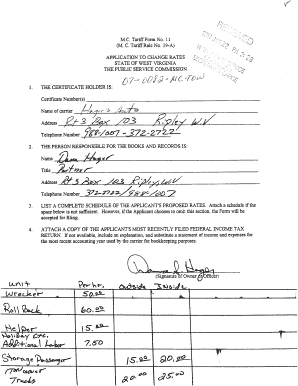 M.C. Tariff Form No. 11
(M. C. Tariff Rule No. 19-A)
RECEIVED
APPLICATION TO CHANGE RATES
STATE OF WEST VIRGINIA
THE PUBLIC SERVICE COMMISSION
07-0082-MC-TOW
1. THE CERTIFICATE HOLDER IS:
Certificate Number(s)
Name of carrier Hagers Auto
Address Rt 3 Box 103 Ripley WV
Telephone Number 988/007-372-2722
2. THE PERSON RESPONSIBLE FOR THE BOOKS AND RECORDS IS:
Name Dana Hager
Title Partner
Address Rt 3 Box 103 Ripley, WV
Telephone Number 372-2722/988/007
3. LIST A COMPLETE SCHEDULE OF THE APPLICANT'S PROPOSED RATES. Attach a schedule if the
space below is not sufficient. However, if the Applicant chooses to omit this section, the Form will be
accepted for filing.
4. ATTACH A COPY OF THE APPLICANT'S MOST RECENTLY FILED FEDERAL INCOME TAX
RETURN. If not available, include an explanation, and submit a statement of income and expenses for
the most recent accounting year used by the carrier for bookkeeping purposes.
(Signature of Owner or Officer)
Unit Per hr. Outside Inside
Wrecker 50.00
Roll Back 60.00
Helper 15.00
Holiday etc.
Additional Labor 7.50
Storage Passenger 15.00 20.00
Trucks 20.00 25.00